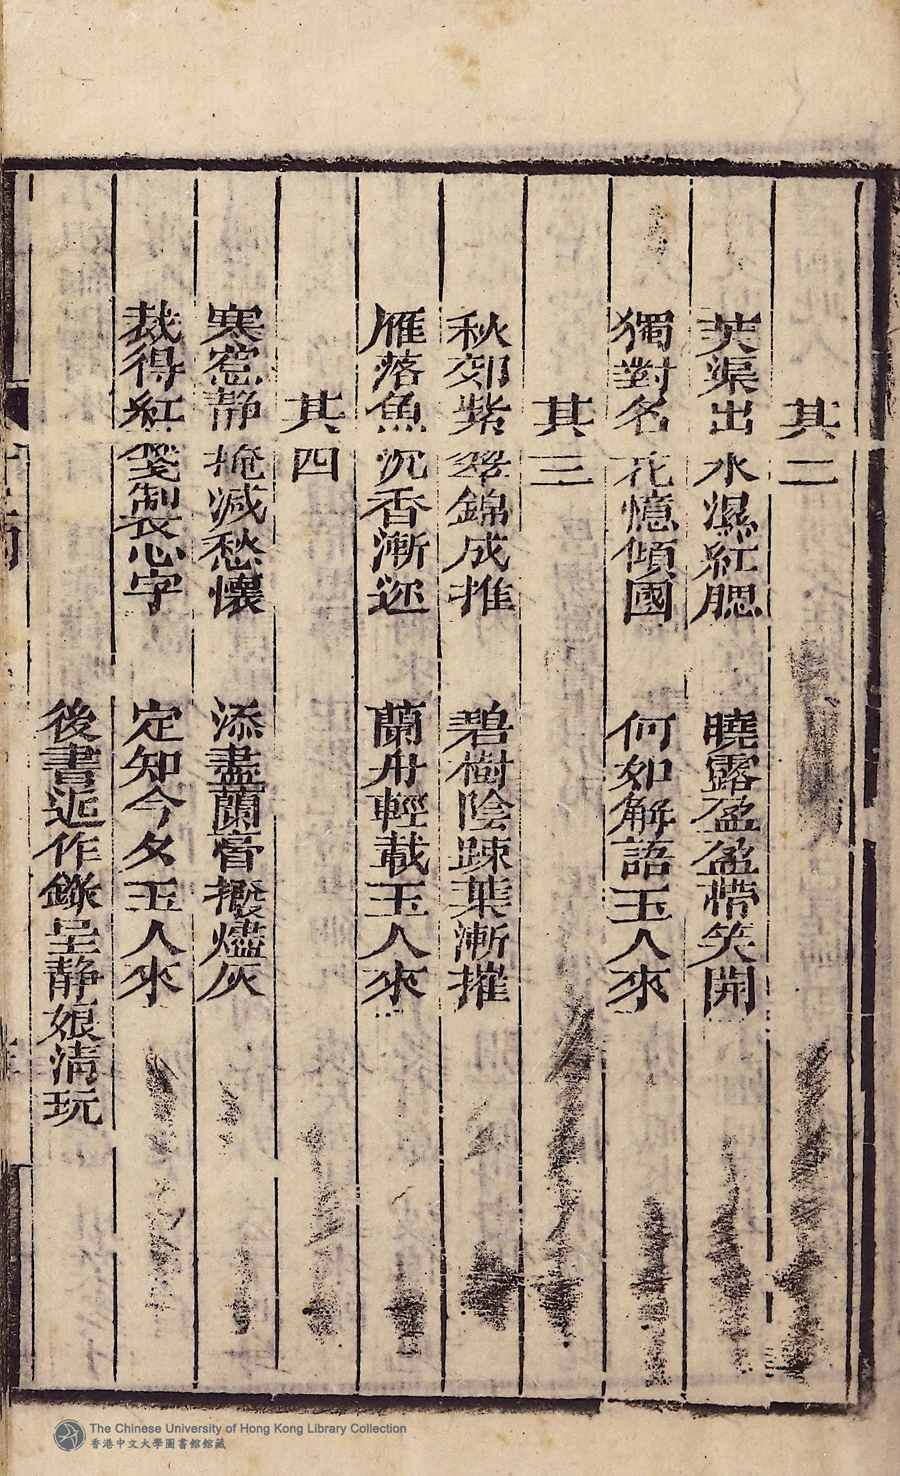 其二
芙渠出水濕紅腮　曉露盈盈帶笑開
獨對名花憶傾國　何如解語玉人來
其三
秋郊紫翠錦成推　碧樹陰踈葉漸摧
雁落魚沉香漸逐　蘭舟輕載玉人來
其四
寒窓静掩減愁懷　添盡蘭膏撥燼灰
裁得紅箋製悫字　定知今夕玉人來
後書近作錄呈静娘清玩
The Chinese University of Hong Kong Library Collection
香港中文大學圖書館館藏